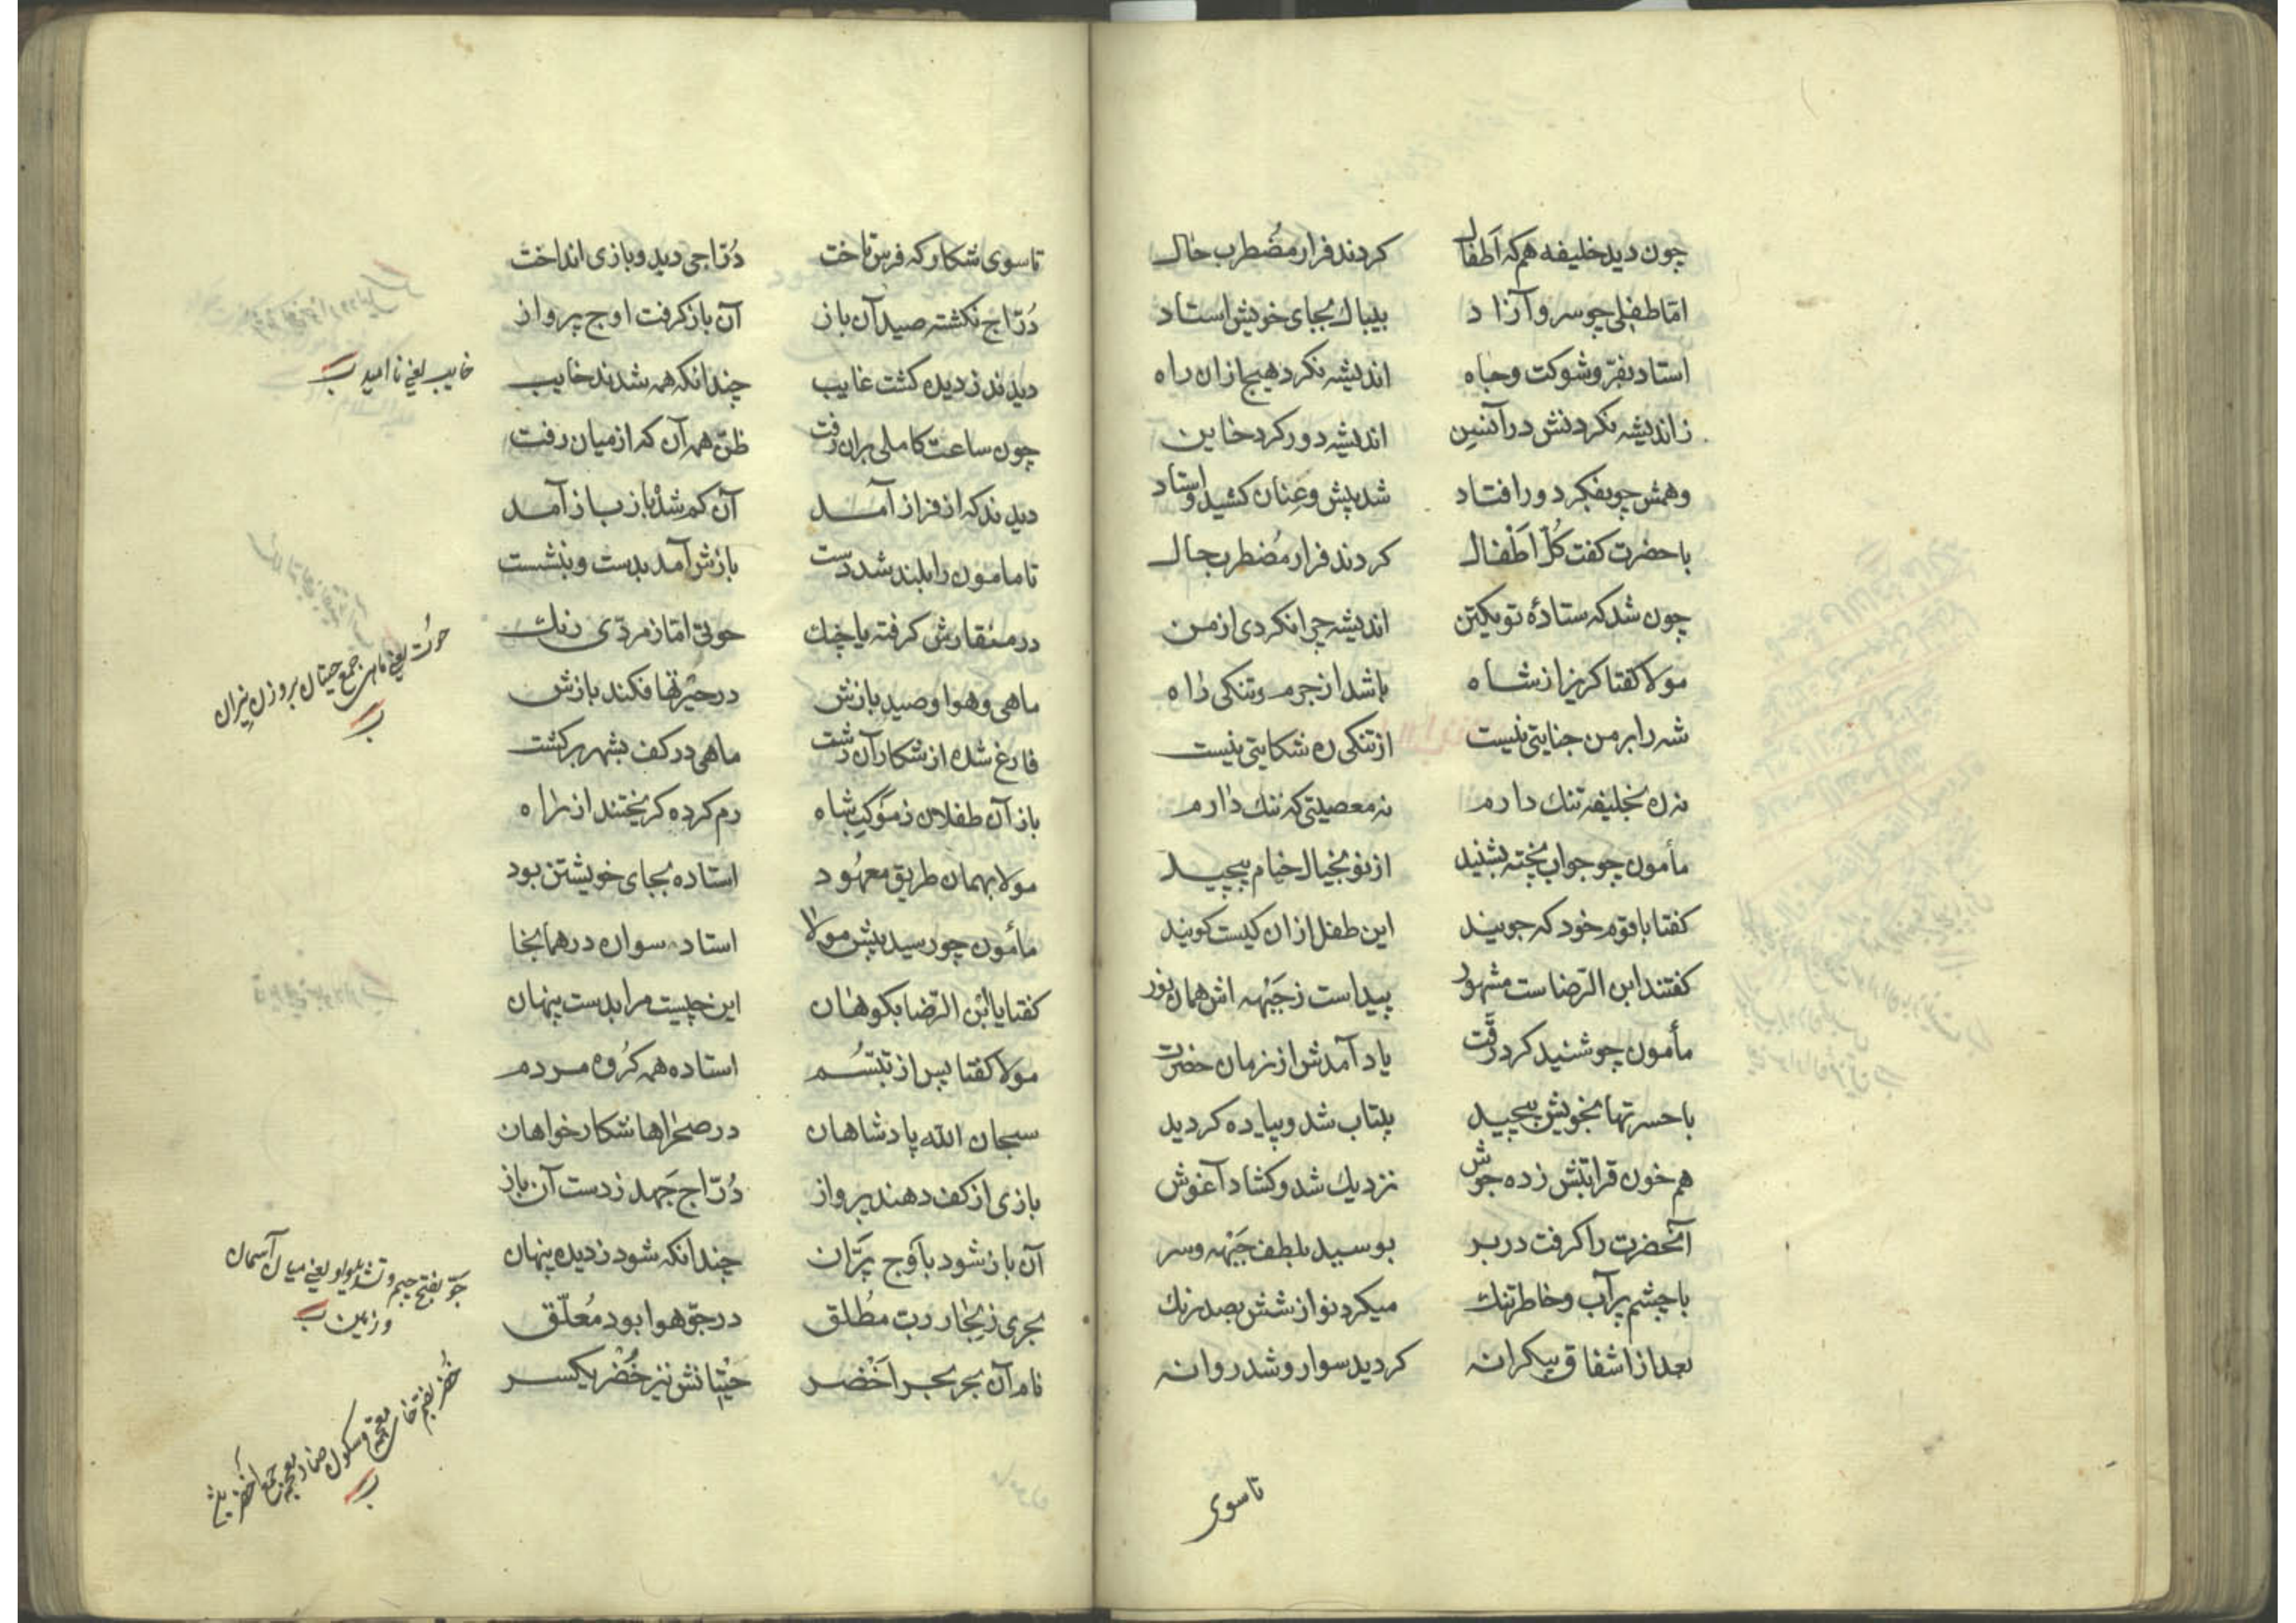 چون دید خلیفه هم که اَطفال کردند فرار مضُطرب حال
امّا طفلی چو سرو آزاد بیباك بجای خویش استاد
استاد بفرّ و شوکت و جاه اندیشه نکرد هیچ ازان راه
ز اندیشه نکردنش در آئین اندیشه دور کرد خاین
وهمش چو بفکر دور افتاد شد پیش و عِنان کشید و استاد
با حضرت کفت کُلّ اَطْفال کردند فرار مضُطرب حال
چون شد که ستادهٔ تو یکتن اندیشه چرا نکردی از من
مولا کفتا کریز از شاه باشد از جرم و تنکی راه
شه را بر من جنایتی نیست از تنکی ره شکایتی نیست
نه ره بخلیفه تنك دارم نه معصیتی که ننك دارم
مأمون چو جواب پخته بشنید از نو بخیال خام پیچید
کفتا با قوم خود که جویید این طفل ازان کیست کویید
کفتند ابن الرّضاست مشهور پیداست ز جَبْهه اش همان نور
مأمون چو شنید کرد رقّت یاد آمدش از زمان حضرت
با حسرتها بخویش پیچید بیتاب شد و پیاده کردید
هم خون قرابتش زده جوش نزدیك شد و کشاد آغوش
آنحضرت را کرفت در بر بوسید بلطف جَبْهه و سر
با چشم پر آب و خاطر تنك میکرد نوازشش بصد رنك
بعد از اشفاق بیکرانه کردید سوار و شد روانه
تا سوی
تا سوی شکار که فرس تاخت دُرّاجی دید و بازی انداخت
دُرّاج نکشته صید آن باز آن باز کرفت اوج پرواز
دیدند ز دیده کشت غایب چندانکه همه شدند خایب
خایب یعنی نا امید
چون ساعت کاملی بران رفت ظنّ همه آن که از میان رفت
دیدند که از فراز آمد آن کم شده باز باز آمد
تا مامون را بلند شد دست بازش آمد بدست و بنشست
در منقارش کرفته یا چنك حوتی امّا زمردّی رنك
حوت یعنی ماهی جمع حیتان بر وزن نیران
ماهی و هوا و صید بازش در حیرتها فکند بازش
فارغ شده از شکار آن دشت ماهی در کف بشهر برکشت
باز آن طفلان ز موکب شاه رم کرده کریختند از راه
مولا بهمان طریق معهُود استاده بجای خویشتن بود
مأمون چو رسید پیش مولا استاد سواره در همانجا
کفتا یا ابْن الرّضا بکو هان این چیست مرا بدست پنهان
مولا کفتا پس از تبسّم استاده همه کُروه مردم
سبحان الله پادشاهان در صحراها شکار خواهان
بازی از کف دهند پرواز دُرّاج جَهد ز دست آن باز
آن باز شود باَوج پرّان چندانکه شود ز دیده پنهان
جوّ بفتح جیم و تشدید واو یعنی میان آسمان
و زمین
بحری ز بخار ربّ مطُلق در جوّ هوا بود مُعلّق
نام آن بحر بحر اَخْضر حیْتانش نیز خُضْر یکسر
خضر بضم خاء معجمه و سکون ضاد معجمه جمع اخضر